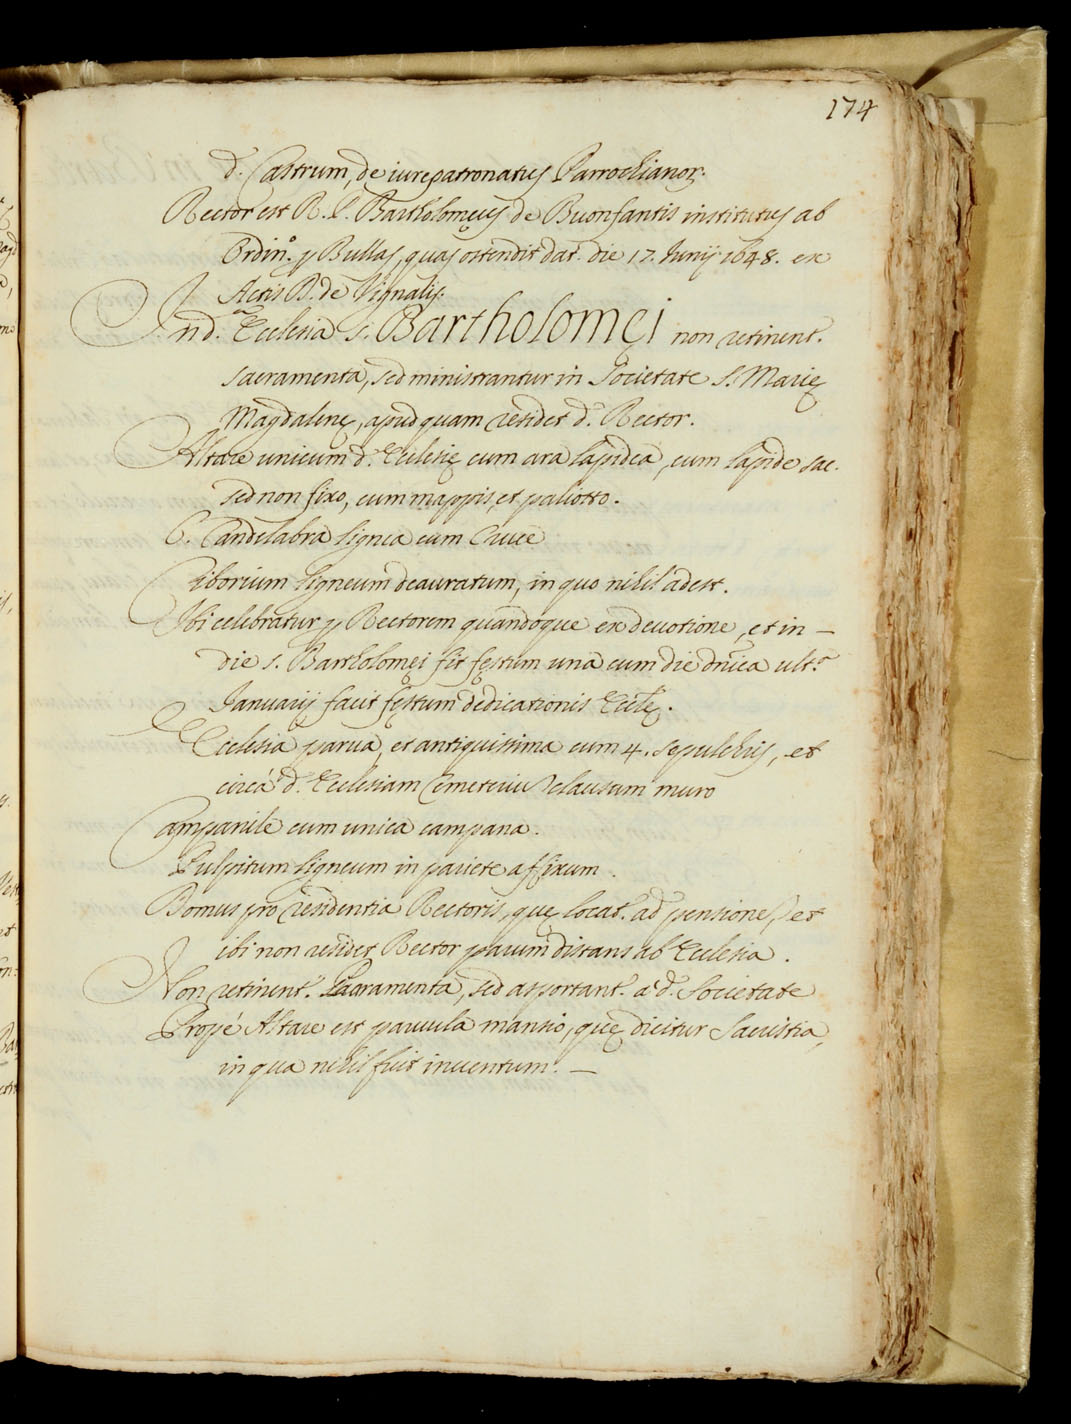 174
d. Castrum, de iurepatronatus Parrochianor:
Rector est R. P. Bartholomęus de Buonfantis institutus ab
Ordin.º p Bullas, quas ostendit dat. die 17. Junij 1648. ex
Actis B. de Signalis:
In d.ª Ecclesia s. Bartholomęi non retinent.
sacramenta, sed ministrantur in Societate S. Marię
Magdalenę, apud quam residet d. Rector.
Altare unicum d. Ecclesię cum ara lapidea, cum lapide sac.
sed non fixo, cum mappis, et paliotto.
6. Candelabra lignea cum Cruce
Ciborium ligneum deauratum, in quo nihil adest.
Ibi celebratur p Rectorem quandoque ex deuotione, et in —
die s. Bartholomęi fit fęstum una cum die dnica ult.ª
Januarij facit fęstum dedicationis Eccłę.
Ecclesia parua, et antiquissima cum 4. sepulchris, et
circá d. Ecclesiam Cemeteriu clausum muro
Campanile cum unica campana.
Pulpitum ligneum in pariete affixum.
Domus pro residentia Rectoris, quę locat. ad pensione, et
ibi non residet Rector parum distans ab Ecclesia.
Non retinent. Sacramenta, sed asportant. a d. Societate
Propé Altare est paruula mansio, quę dicitur Sacristia,
in qua nihil fuit inuentum. —